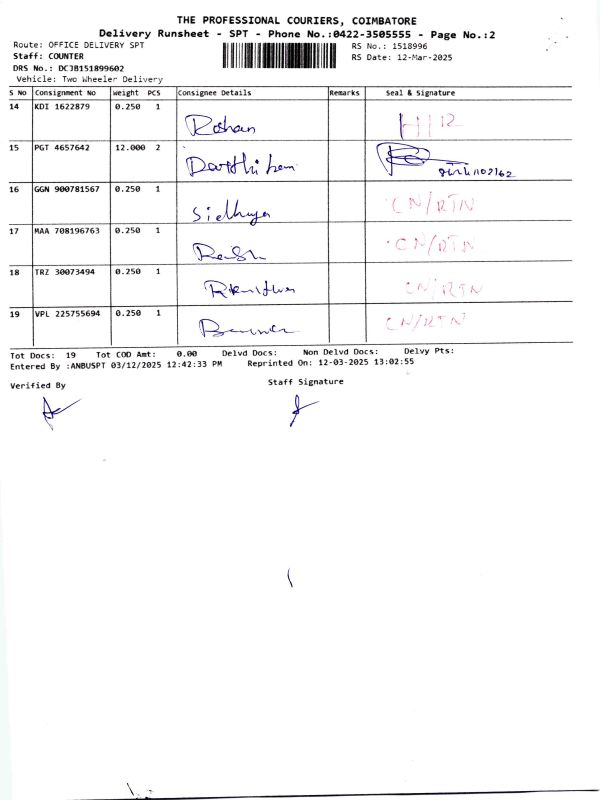 THE PROFESSIONAL COURIERS, COIMBATORE
Delivery Runsheet - SPT - Phone No.:0422-3505555 - Page No.:2
Route: OFFICE DELIVERY SPT RS No.: 1518996
Staff: COUNTER RS Date: 12-Mar-2025
DRS No.: DCJB151899602
Vehicle: Two Wheeler Delivery
S No Consignment No Weight PCS Consignee Details Remarks Seal & Signature
14 KDI 1622879 0.250 1 Roshan
15 PGT 4657642 12.000 2
16 GGN 900781567 0.250 1 CN/RTN
17 MAA 708196763 0.250 1 CN/RTN
18 TRZ 30073494 0.250 1 CN/RTN
19 VPL 225755694 0.250 1 CN/RTN
Tot Docs: 19 Tot COD Amt: 0.00 Delvd Docs: Non Delvd Docs: Delvy Pts:
Entered By :ANBUSPT 03/12/2025 12:42:33 PM Reprinted On: 12-03-2025 13:02:55
Verified By Staff Signature